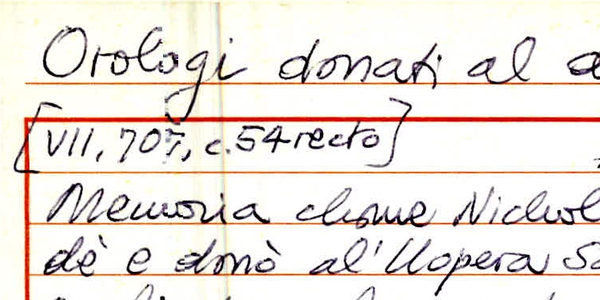 Orologi donati al
[VII, 707, c. 54 recto]
Memoria chome Nichol
dè e donò al'Uopera